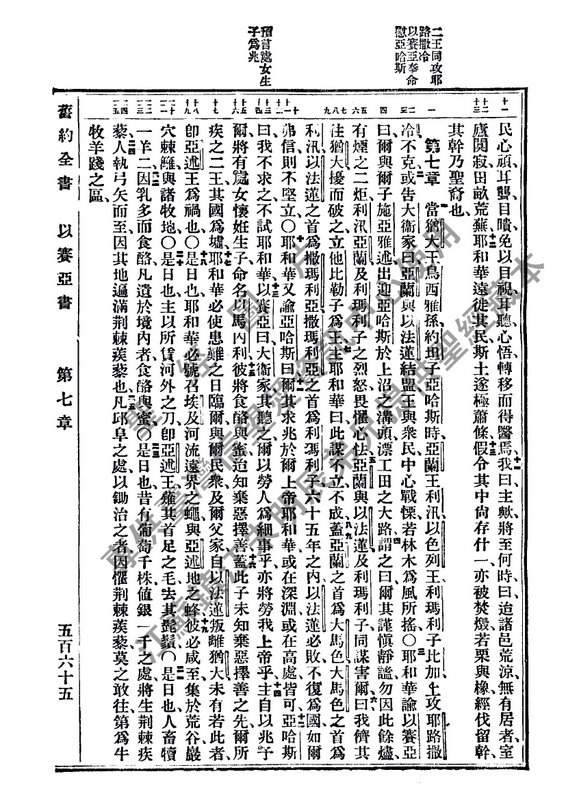 二王同攻耶
路撒冷
以賽亞奉命
慰亞哈斯
預言處女生
子爲兆
民心頑耳聾目瞶免以目視耳聽心悟轉移而得醫焉我曰主歟將至何時曰迨諸邑荒涼無有居者室
廬闃寂田畝荒蕪耶和華遠徙其民斯土遂極蕭條假令其中尚存什一亦被焚燬若栗與橡經伐留幹
其幹乃聖裔也
第七章 當猶大王烏西雅孫約坦子亞哈斯時亞蘭王利汛以色列王利瑪利子比加上攻耶路撒
冷不克或告大衛家曰亞蘭與以法蓮結盟王與衆民中心戰慄若林木爲風所搖〇耶和華諭以賽亞
曰爾與爾子施亞雅述出迎亞哈斯於上沼之溝頭漂工田之大路謂之曰爾其謹愼靜謐勿因此餘燼
有煙之二炬利汛亞蘭及利瑪利子之烈怒畏懼心怯亞蘭與以法蓮及利瑪利子同謀害爾曰我儕其
往猶大擾而破之立他比勒子爲王主耶和華曰此謀不立不成蓋亞蘭之首爲大馬色大馬色之首爲
利汛以法蓮之首爲撒瑪利亞撒瑪利亞之首爲利瑪利子六十五年之內以法蓮必敗不復爲國如爾
弗信則不堅立〇耶和華又諭亞哈斯曰爾其求兆於爾上帝耶和華或在深淵或在高處皆可亞哈斯
曰我不求之不試耶和華以賽亞曰大衛家其聽之爾以勞人爲細事乎亦將勞我上帝乎主自以兆予
爾將有處女懷妊生子命名以馬內利彼將食酪與蜜迨知棄惡擇善蓋此子未知棄惡擇善之先爾所
疾之二王其國爲墟耶和華必使患難之日臨爾與爾民衆及爾父家自以法蓮叛離猶大未有若此者
卽亞述王爲禍也〇是日也耶和華必號召埃及河流遠界之蠅與亞述地之蜂彼必咸至集於荒谷巖
穴荊棘籬與諸牧地〇是日也主以所賃河外之刀卽亞述王薙其首足之毛去其髭鬚〇是日也人畜犢
一羊二因乳多而食酪凡遺於境內者食酪與蜜〇是日也昔有葡萄千株値銀一千之處將生荊棘蒺
藜人執弓矢而至因其地遍滿荊棘蒺藜也凡邱阜之處以鋤治之者因懼荊棘蒺藜莫之敢往第爲牛
牧羊踐之區
舊約全書 以賽亞書 第七章 五百六十五